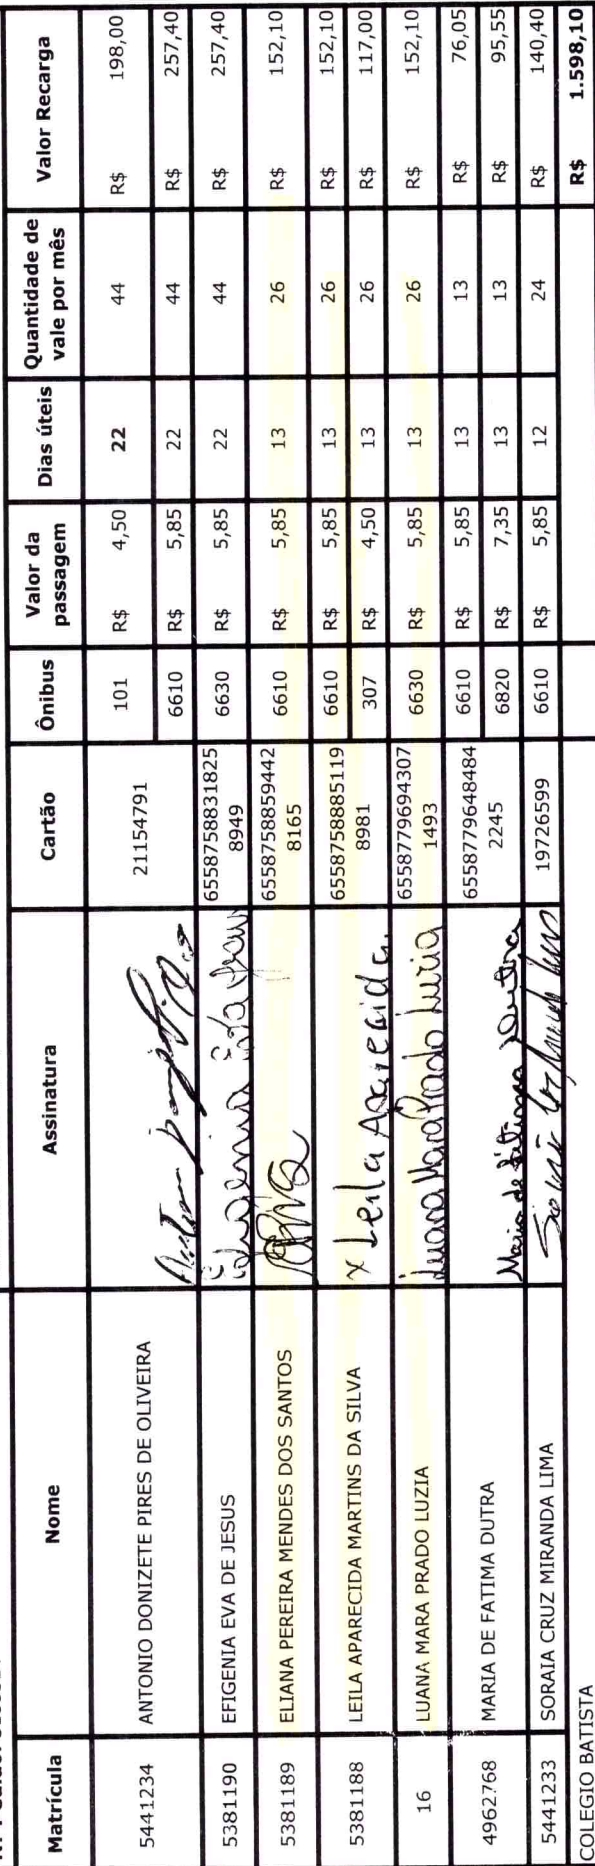 Matrícula Nome Assinatura Cartão Ônibus Valor da passagem Dias úteis Quantidade de vale por mês Valor Recarga
5441234 ANTONIO DONIZETE PIRES DE OLIVEIRA 21154791 101 R$ 4,50 22 44 R$ 198,00
6610 R$ 5,85 22 44 R$ 257,40
5381190 EFIGENIA EVA DE JESUS Efigenia 65587588318258949 6630 R$ 5,85 22 44 R$ 257,40
5381189 ELIANA PEREIRA MENDES DOS SANTOS 65587588594428165 6610 R$ 5,85 13 26 R$ 152,10
5381188 LEILA APARECIDA MARTINS DA SILVA x Leila Aparecida 65587588851198981 6610 R$ 5,85 13 26 R$ 152,10
307 R$ 4,50 13 26 R$ 117,00
16 LUANA MARA PRADO LUZIA Luana Mara Prado Luzia 65587796943071493 6630 R$ 5,85 13 26 R$ 152,10
4962768 MARIA DE FATIMA DUTRA Maria de Fátima Dutra 65587796484842245 6610 R$ 5,85 13 13 R$ 76,05
6820 R$ 7,35 13 13 R$ 95,55
5441233 SORAIA CRUZ MIRANDA LIMA 19726599 6610 R$ 5,85 12 24 R$ 140,40
COLEGIO BATISTA R$ 1.598,10